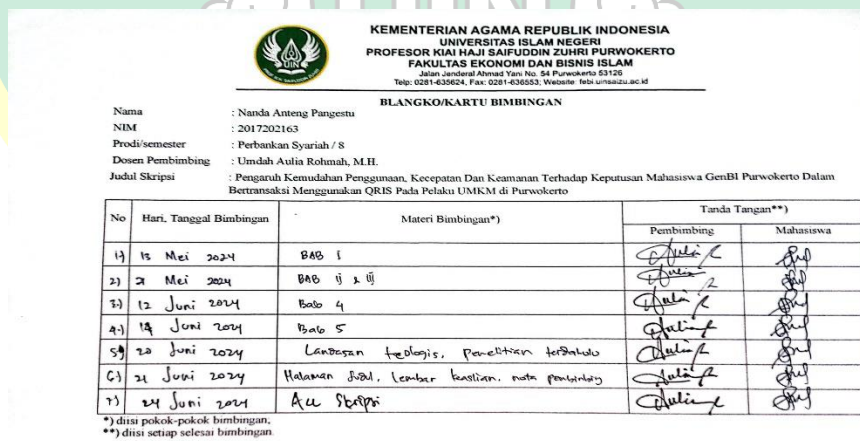 KEMENTERIAN AGAMA REPUBLIK INDONESIA
UNIVERSITAS ISLAM NEGERI
PROFESOR KIAI HAJI SAIFUDDIN ZUHRI PURWOKERTO
FAKULTAS EKONOMI DAN BISNIS ISLAM
Jalan Jenderal Ahmad Yani No. 54 Purwokerto 53126
Telp: 0281-635624, Fax: 0281-636553; Website: febi.uinsaizu.ac.id
UIN
BLANGKO/KARTU BIMBINGAN
Nama : Nanda Anteng Pangestu
NIM : 2017202163
Prodi/semester : Perbankan Syariah / 8
Dosen Pembimbing : Umdah Aulia Rohmah, M.H.
Judul Skripsi : Pengaruh Kemudahan Penggunaan, Kecepatan Dan Keamanan Terhadap Keputusan Mahasiswa GenBI Purwokerto Dalam
Bertransaksi Menggunakan QRIS Pada Pelaku UMKM di Purwokerto
No Hari, Tanggal Bimbingan Materi Bimbingan*) Tanda Tangan**)
Pembimbing Mahasiswa
1) 13 Mei 2024 BAB I
2) 21 Mei 2024 BAB II & III
3.) 12 Juni 2024 Bab 4
4.) 14 Juni 2024 Bab 5
5) 20 Juni 2024 Landasan teologis, penelitian terdahulu
6) 21 Juni 2024 Halaman judul, lembar keaslian, nota pembimbing
7) 24 Juni 2024 Acc Skripsi
*) diisi pokok-pokok bimbingan,
**) diisi setiap selesai bimbingan